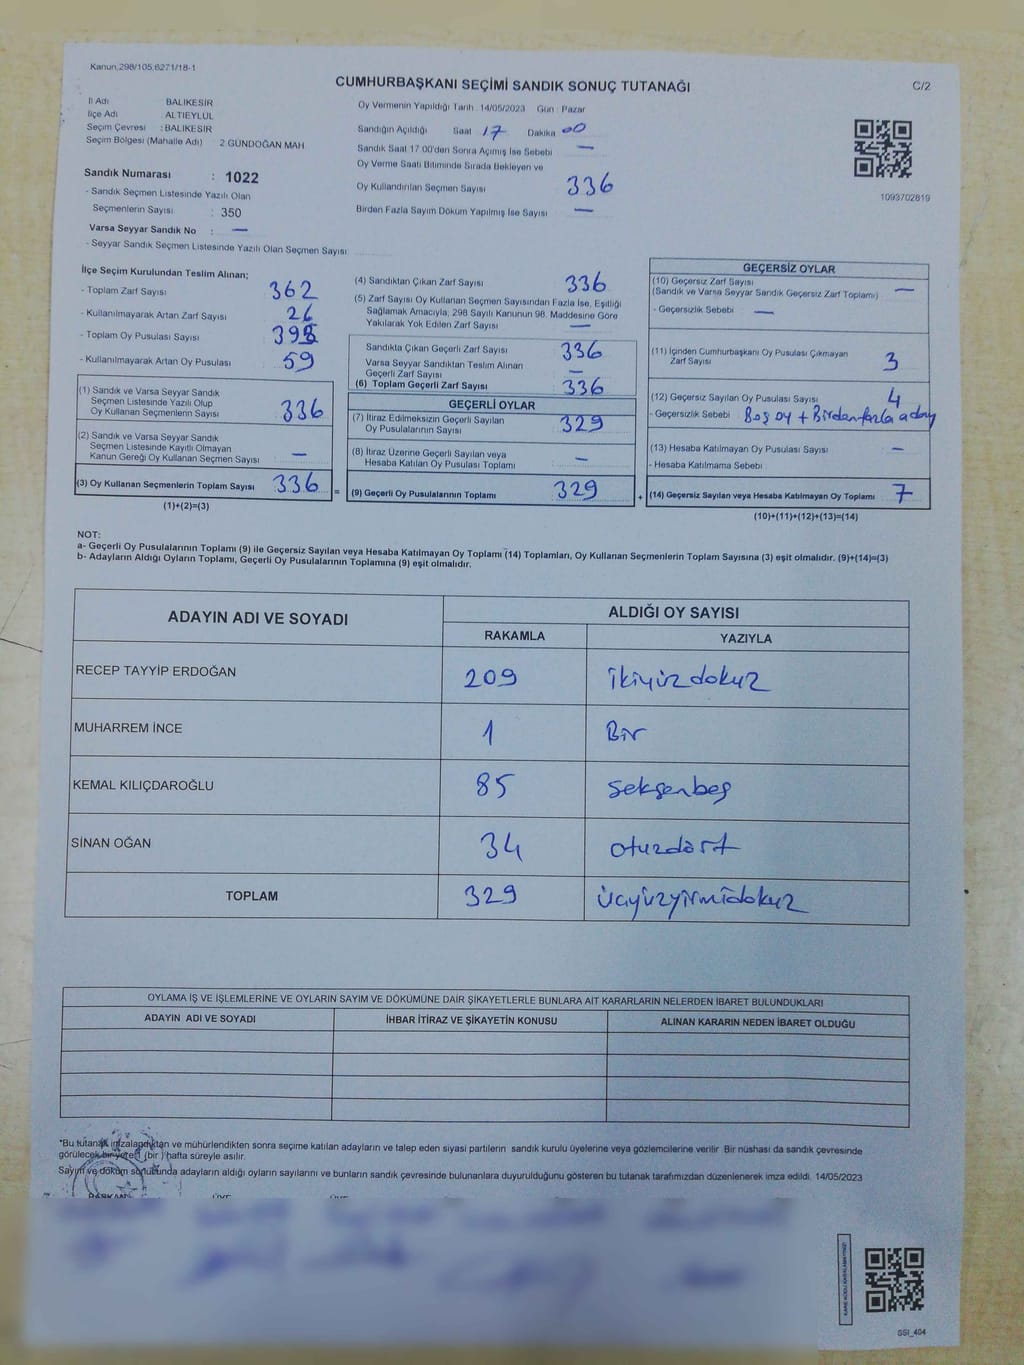 Kanun,298/105,6271/18-1
CUMHURBAŞKANI SEÇİMİ SANDIK SONUÇ TUTANAĞI
C/2
İl Adı : BALIKESİR
İlçe Adı : ALTIEYLÜL
Seçim Çevresi : BALIKESİR
Seçim Bölgesi (Mahalle Adı) 2 GÜNDOĞAN MAH.
Sandık Numarası : 1022
- Sandık Seçmen Listesinde Yazılı Olan
Seçmenlerin Sayısı : 350
Varsa Seyyar Sandık No : —
- Seyyar Sandık Seçmen Listesinde Yazılı Olan Seçmen Sayısı
Oy Vermenin Yapıldığı Tarih 14/05/2023 Gün : Pazar
Sandığın Açıldığı Saat 17 Dakika 00
Sandık Saat 17.00'den Sonra Açılmış İse Sebebi —
Oy Verme Saati Bitiminde Sırada Bekleyen ve
Oy Kullandırılan Seçmen Sayısı 336
Birden Fazla Sayım Döküm Yapılmış İse Sayısı —
1093702819
İlçe Seçim Kurulundan Teslim Alınan;
- Toplam Zarf Sayısı 362
- Kullanılmayarak Artan Zarf Sayısı 26
- Toplam Oy Pusulası Sayısı
- Kullanılmayarak Artan Oy Pusulası 59
(1) Sandık ve Varsa Seyyar Sandık
Seçmen Listesinde Yazılı Olup
Oy Kullanan Seçmenlerin Sayısı 336
(2) Sandık ve Varsa Seyyar Sandık
Seçmen Listesinde Kayıtlı Olmayan
Kanun Gereği Oy Kullanan Seçmen Sayısı —
(3) Oy Kullanan Seçmenlerin Toplam Sayısı 336
(1)+(2)=(3)
(4) Sandıktan Çıkan Zarf Sayısı 336
(5) Zarf Sayısı Oy Kullanan Seçmen Sayısından Fazla İse, Eşitliği
Sağlamak Amacıyla, 298 Sayılı Kanunun 98. Maddesine Göre
Yakılarak Yok Edilen Zarf Sayısı —
Sandıkta Çıkan Geçerli Zarf Sayısı 336
Varsa Seyyar Sandıktan Teslim Alınan
Geçerli Zarf Sayısı —
(6) Toplam Geçerli Zarf Sayısı 336
GEÇERLİ OYLAR
(7) İtiraz Edilmeksizin Geçerli Sayılan
Oy Pusulalarının Sayısı 329
(8) İtiraz Üzerine Geçerli Sayılan veya
Hesaba Katılan Oy Pusulası Toplamı —
= (9) Geçerli Oy Pusulalarının Toplamı 329
GEÇERSİZ OYLAR
(10) Geçersiz Zarf Sayısı
(Sandık ve Varsa Seyyar Sandık Geçersiz Zarf Toplamı) —
- Geçersizlik Sebebi —
(11) İçinden Cumhurbaşkanı Oy Pusulası Çıkmayan
Zarf Sayısı 3
(12) Geçersiz Sayılan Oy Pusulası Sayısı 4
- Geçersizlik Sebebi Boş oy + Birden fazla aday
(13) Hesaba Katılmayan Oy Pusulası Sayısı —
- Hesaba Katılmama Sebebi
+ (14) Geçersiz Sayılan veya Hesaba Katılmayan Oy Toplamı 7
(10)+(11)+(12)+(13)=(14)
NOT:
a- Geçerli Oy Pusulalarının Toplamı (9) ile Geçersiz Sayılan veya Hesaba Katılmayan Oy Toplamı (14) Toplamları, Oy Kullanan Seçmenlerin Toplam Sayısına (3) eşit olmalıdır. (9)+(14)=(3)
b- Adayların Aldığı Oyların Toplamı, Geçerli Oy Pusulalarının Toplamına (9) eşit olmalıdır.
ADAYIN ADI VE SOYADI
ALDIĞI OY SAYISI
RAKAMLA YAZIYLA
RECEP TAYYİP ERDOĞAN 209 ikiyüzdokuz
MUHARREM İNCE 1 Bir
KEMAL KILIÇDAROĞLU 85 seksenbeş
SİNAN OĞAN 34 otuzdört
TOPLAM 329 üçyüzyirmidokuz
OYLAMA İŞ VE İŞLEMLERİNE VE OYLARIN SAYIM VE DÖKÜMÜNE DAİR ŞİKAYETLERLE BUNLARA AİT KARARLARIN NELERDEN İBARET BULUNDUKLARI
ADAYIN ADI VE SOYADI İHBAR İTİRAZ VE ŞİKAYETİN KONUSU ALINAN KARARIN NEDEN İBARET OLDUĞU
*Bu tutanak imzalandıktan ve mühürlendikten sonra seçime katılan adayların ve talep eden siyasi partilerin sandık kurulu üyelerine veya gözlemcilerine verilir. Bir nüshası da sandık çevresinde
görülecek bir yere 1 (bir ) hafta süreyle asılır.
Sayım ve döküm sonucunda adayların aldığı oyların sayılarını ve bunların sandık çevresinde bulunanlara duyurulduğunu gösteren bu tutanak tarafımızdan düzenlenerek imza edildi. 14/05/2023
BAŞKAN ÜYE ÜYE
SSİ_404